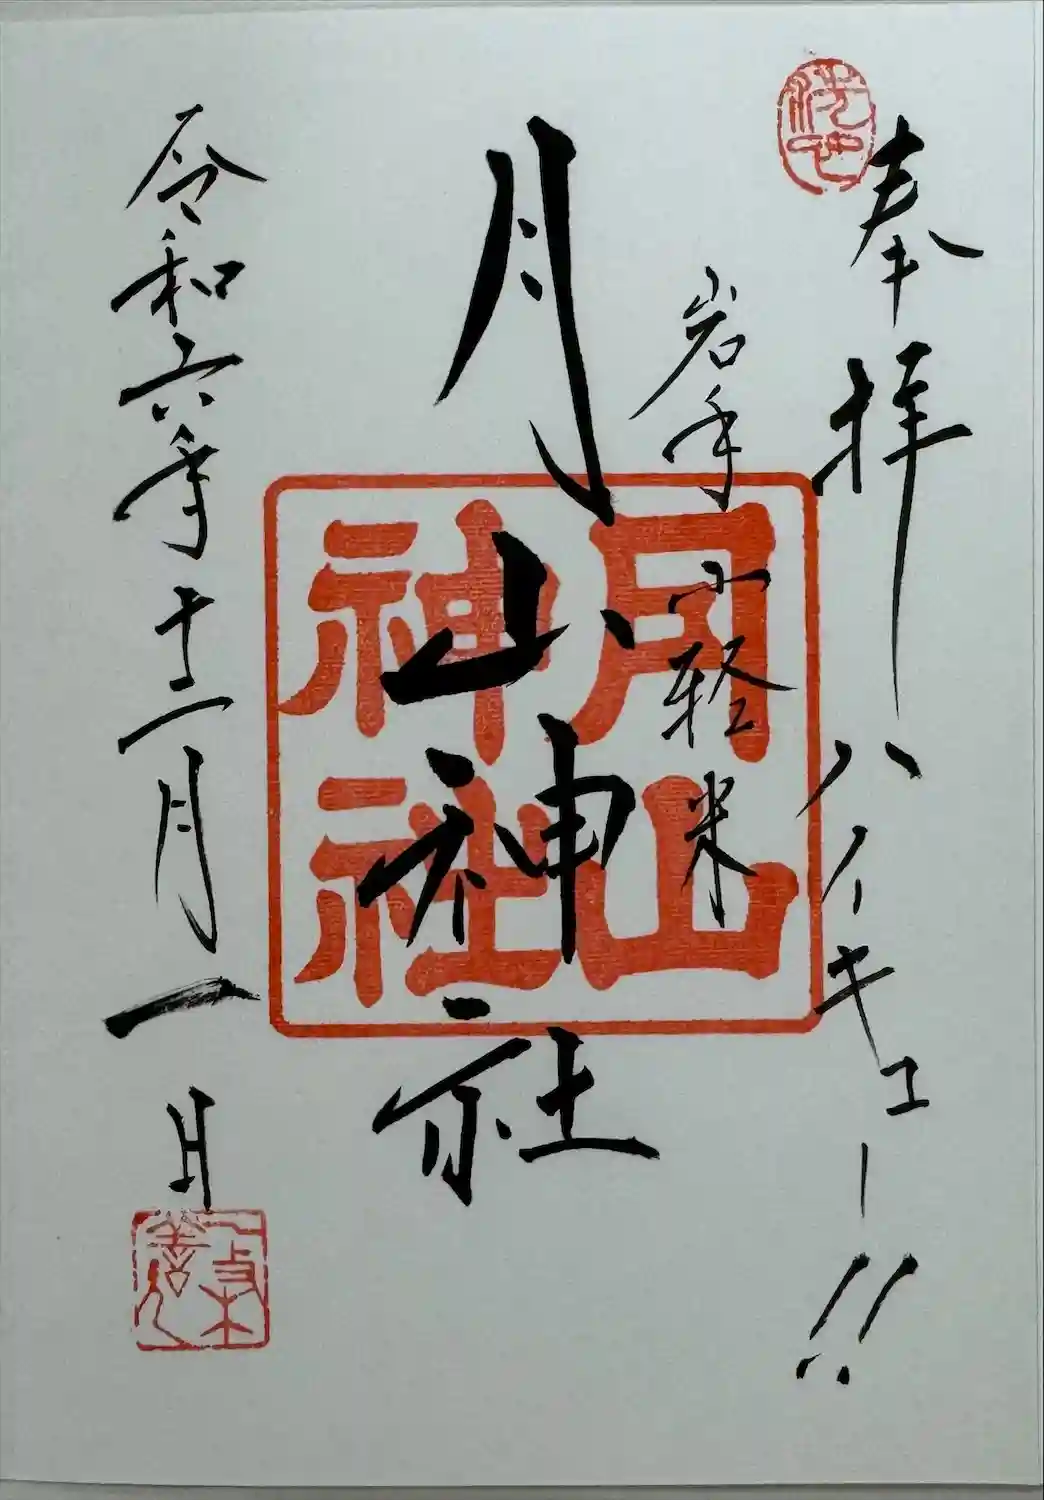 奉拝 ハイキュー!!
岩手 軽米
月山神社
月山
神社
令和六年十二月一日